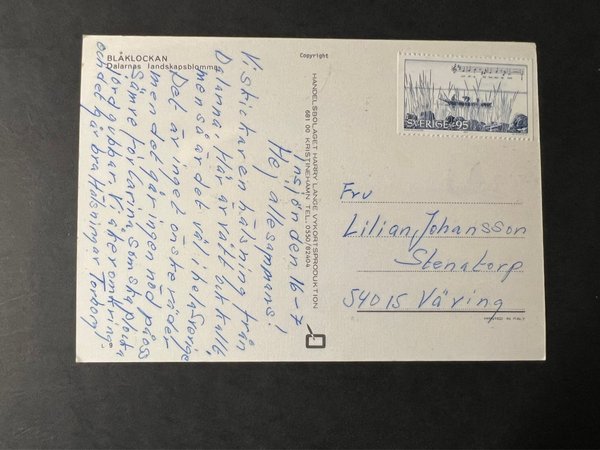 BLÅKLOCKAN
Dalarnas landskapsblomma
Copyright
SVERIGE 95
Hensjön den 16-7
Hej allesammans!
Vi skickar en hälsning från
Dalarna. Här är vått och kallt
men så är det väl i hela Sverige
Det är inget önskeväder
men det går ingen nöd på oss
Sämre för Carina som ska plocka
jordgubbar. Vi åker omkring
och det är bra Hälsningar Torbom
HANDELSBOLAGET HARRY LANGE VYKORTSPRODUKTION
681 00 KRISTINEHAMN TEL. 0550/82404
Fru
Lilian Johansson
Stenatorp
54015 Väring
PRINTED IN ITALY